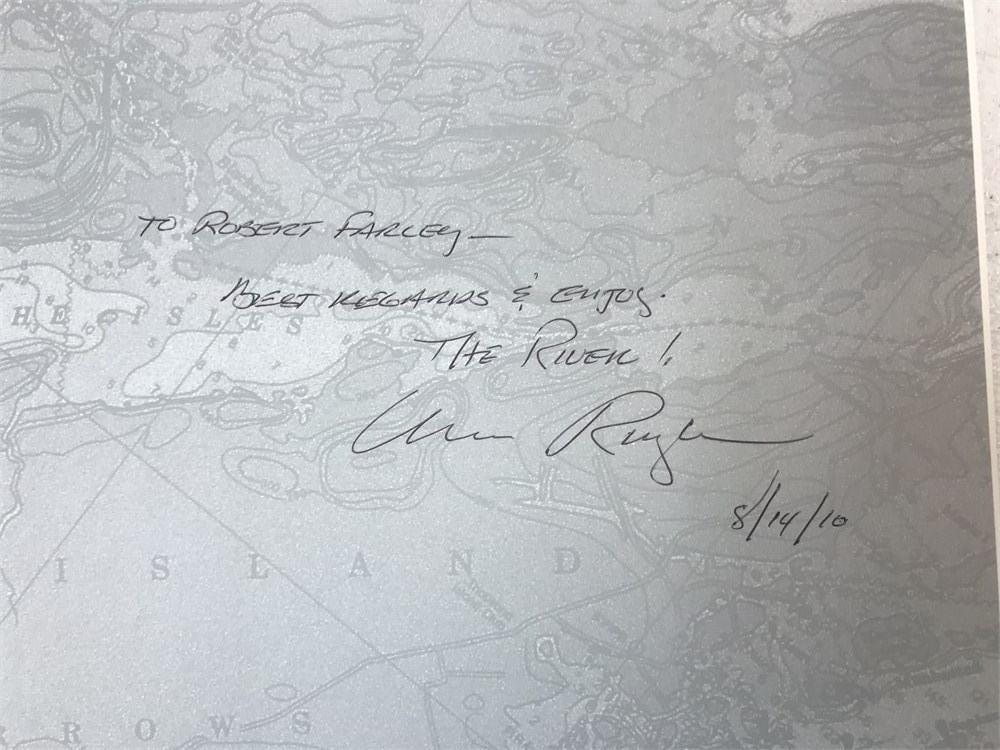 TO ROBERT FARLEY —
BEST REGARDS & ENJOY
THE RIVER!
8/14/10
A N D
HE ISLES
ISLAND
ROWS